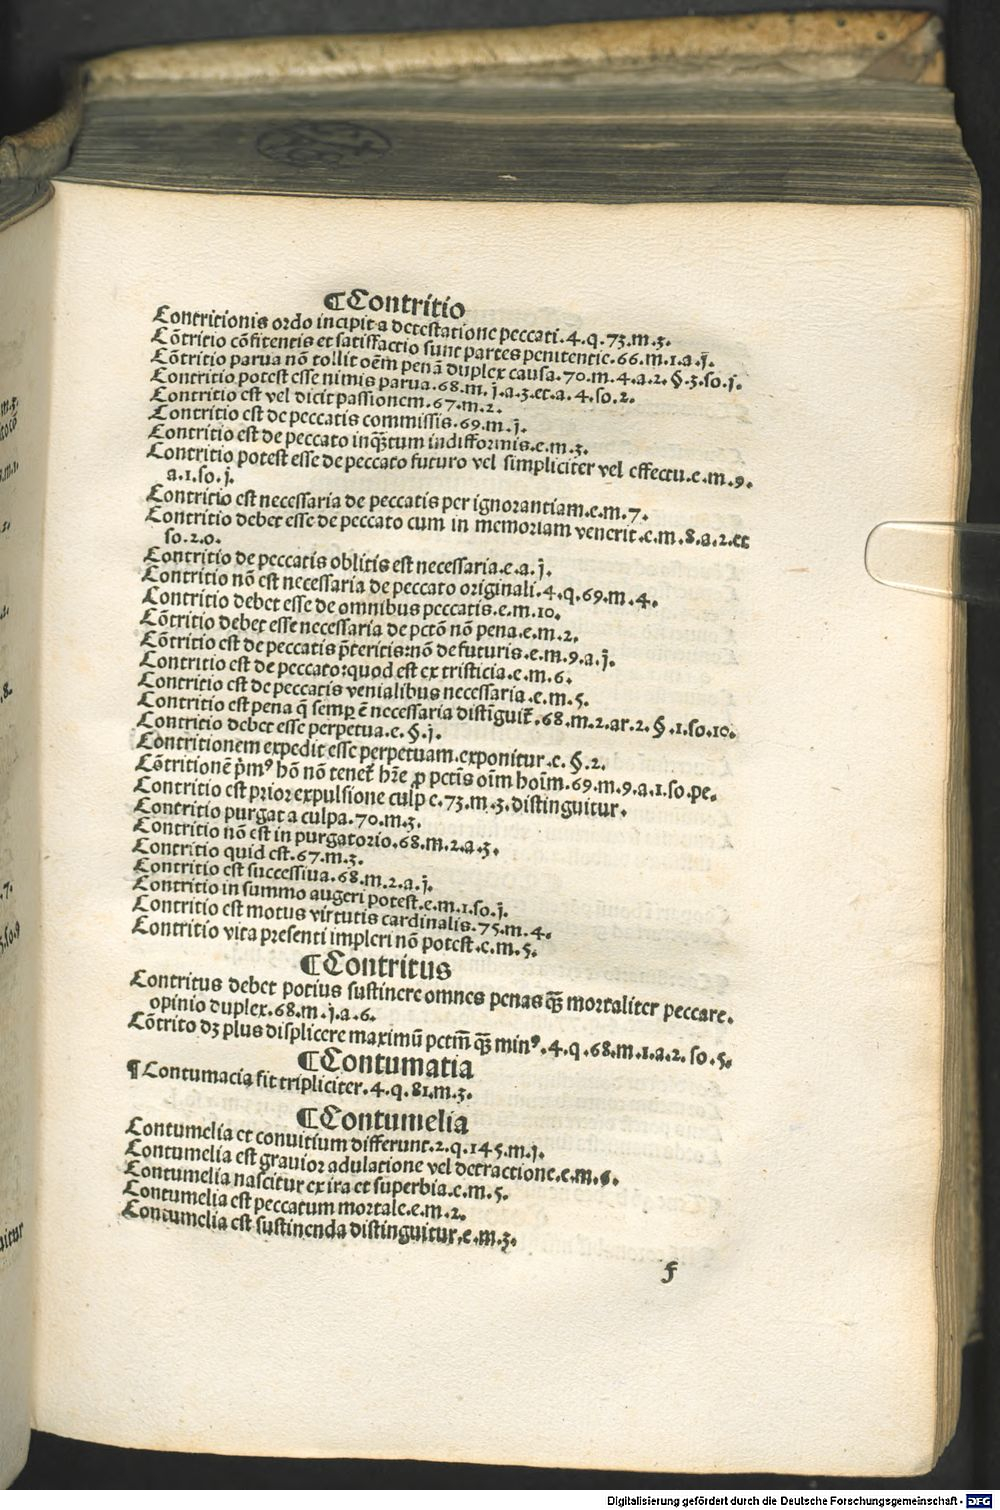 ¶Contritio
Contritionis ordo incipit a detestatione peccati.4.q.73.m.3.
Cōtritio cōfitentis et satisfactio sunt partes penitentie.66.m.1.a.j.
Cōtritio parua nō tollit oēm penā duplex causa.70.m.4.a.2.§.3.so.j.
Contritio potest esse nimis parua.68.m.j.a.3.et.a.4.so.2.
Contritio est vel dicit passionem.67.m.2.
Contritio est de peccatis commissis.69.m.j.
Contritio est de peccato inqꝫtum indifformis.e.m.3.
Contritio potest esse de peccato futuro vel simpliciter vel effectu.e.m.9.
a.1.so.j.
Contritio est necessaria de peccatis per ignorantiam.e.m.7.
Contritio debet esse de peccato cum in memoriam venerit.e.m.8.a.2.et
so.2.o.
Contritio de peccatis oblitis est necessaria.e.a.j.
Contritio nō est necessaria de peccato originali.4.q.69.m.4.
Contritio debet esse de omnibus peccatis.e.m.10.
Cōtritio debet esse necessaria de pctō nō pena.e.m.2.
Cōtritio est de peccatis p̄teritis:nō de futuris.e.m.9.a.j.
Contritio est de peccato:quod est ex tristicia.e.m.6.
Contritio est de peccatis venialibus necessaria.e.m.5.
Contritio est pena q̄ semp̱ ē necessaria distīguit᷑.68.m.2.ar.2.§.1.so.10.
Contritio debet esse perpetua.e.§.j.
Contritionem expedit esse perpetuam.exponitur.e.§.2.
Cōtritionē p̄mꝰ hō nō tenet᷑ hr̄e ꝓ pctīs oīm hoīm.69.m.9.a.1.so.pe.
Contritio est prior expulsione culp e.73.m.3.distinguitur.
Contritio purgat a culpa.70.m.3.
Contritio nō est in purgatorio.68.m.2.a.3.
Contritio quid est.67.m.3.
Contritio est successiua.68.m.2.a.j.
Contritio in summo augeri potest.e.m.1.so.j.
Contritio est motus virtutis cardinalis.75.m.4.
Contritio vita presenti impleri nō potest.e.m.5.
¶Contritus
Contritus debet potius sustinere omnes penas qꝫ mortaliter peccare.
opinio duplex.68.m.j.a.6.
Cōtrito dꝫ plus displicere maximū pctm̄ qꝫ minꝰ.4.q.68.m.1.a.2.so.5.
¶Contumatia
¶Contumacia fit tripliciter.4.q.81.m.3.
¶Contumelia
Contumelia et conuitium differunt.2.q.145.m.j.
Contumelia est grauior adulatione vel detractione.e.m.6.
Contumelia nascitur ex ira et superbia.e.m.5.
Contumelia est peccatum mortale.e.m.2.
Contumelia est sustinenda distinguitur.e.m.3.
f
Digitalisierung gefördert durch die Deutsche Forschungsgemeinschaft - DFG